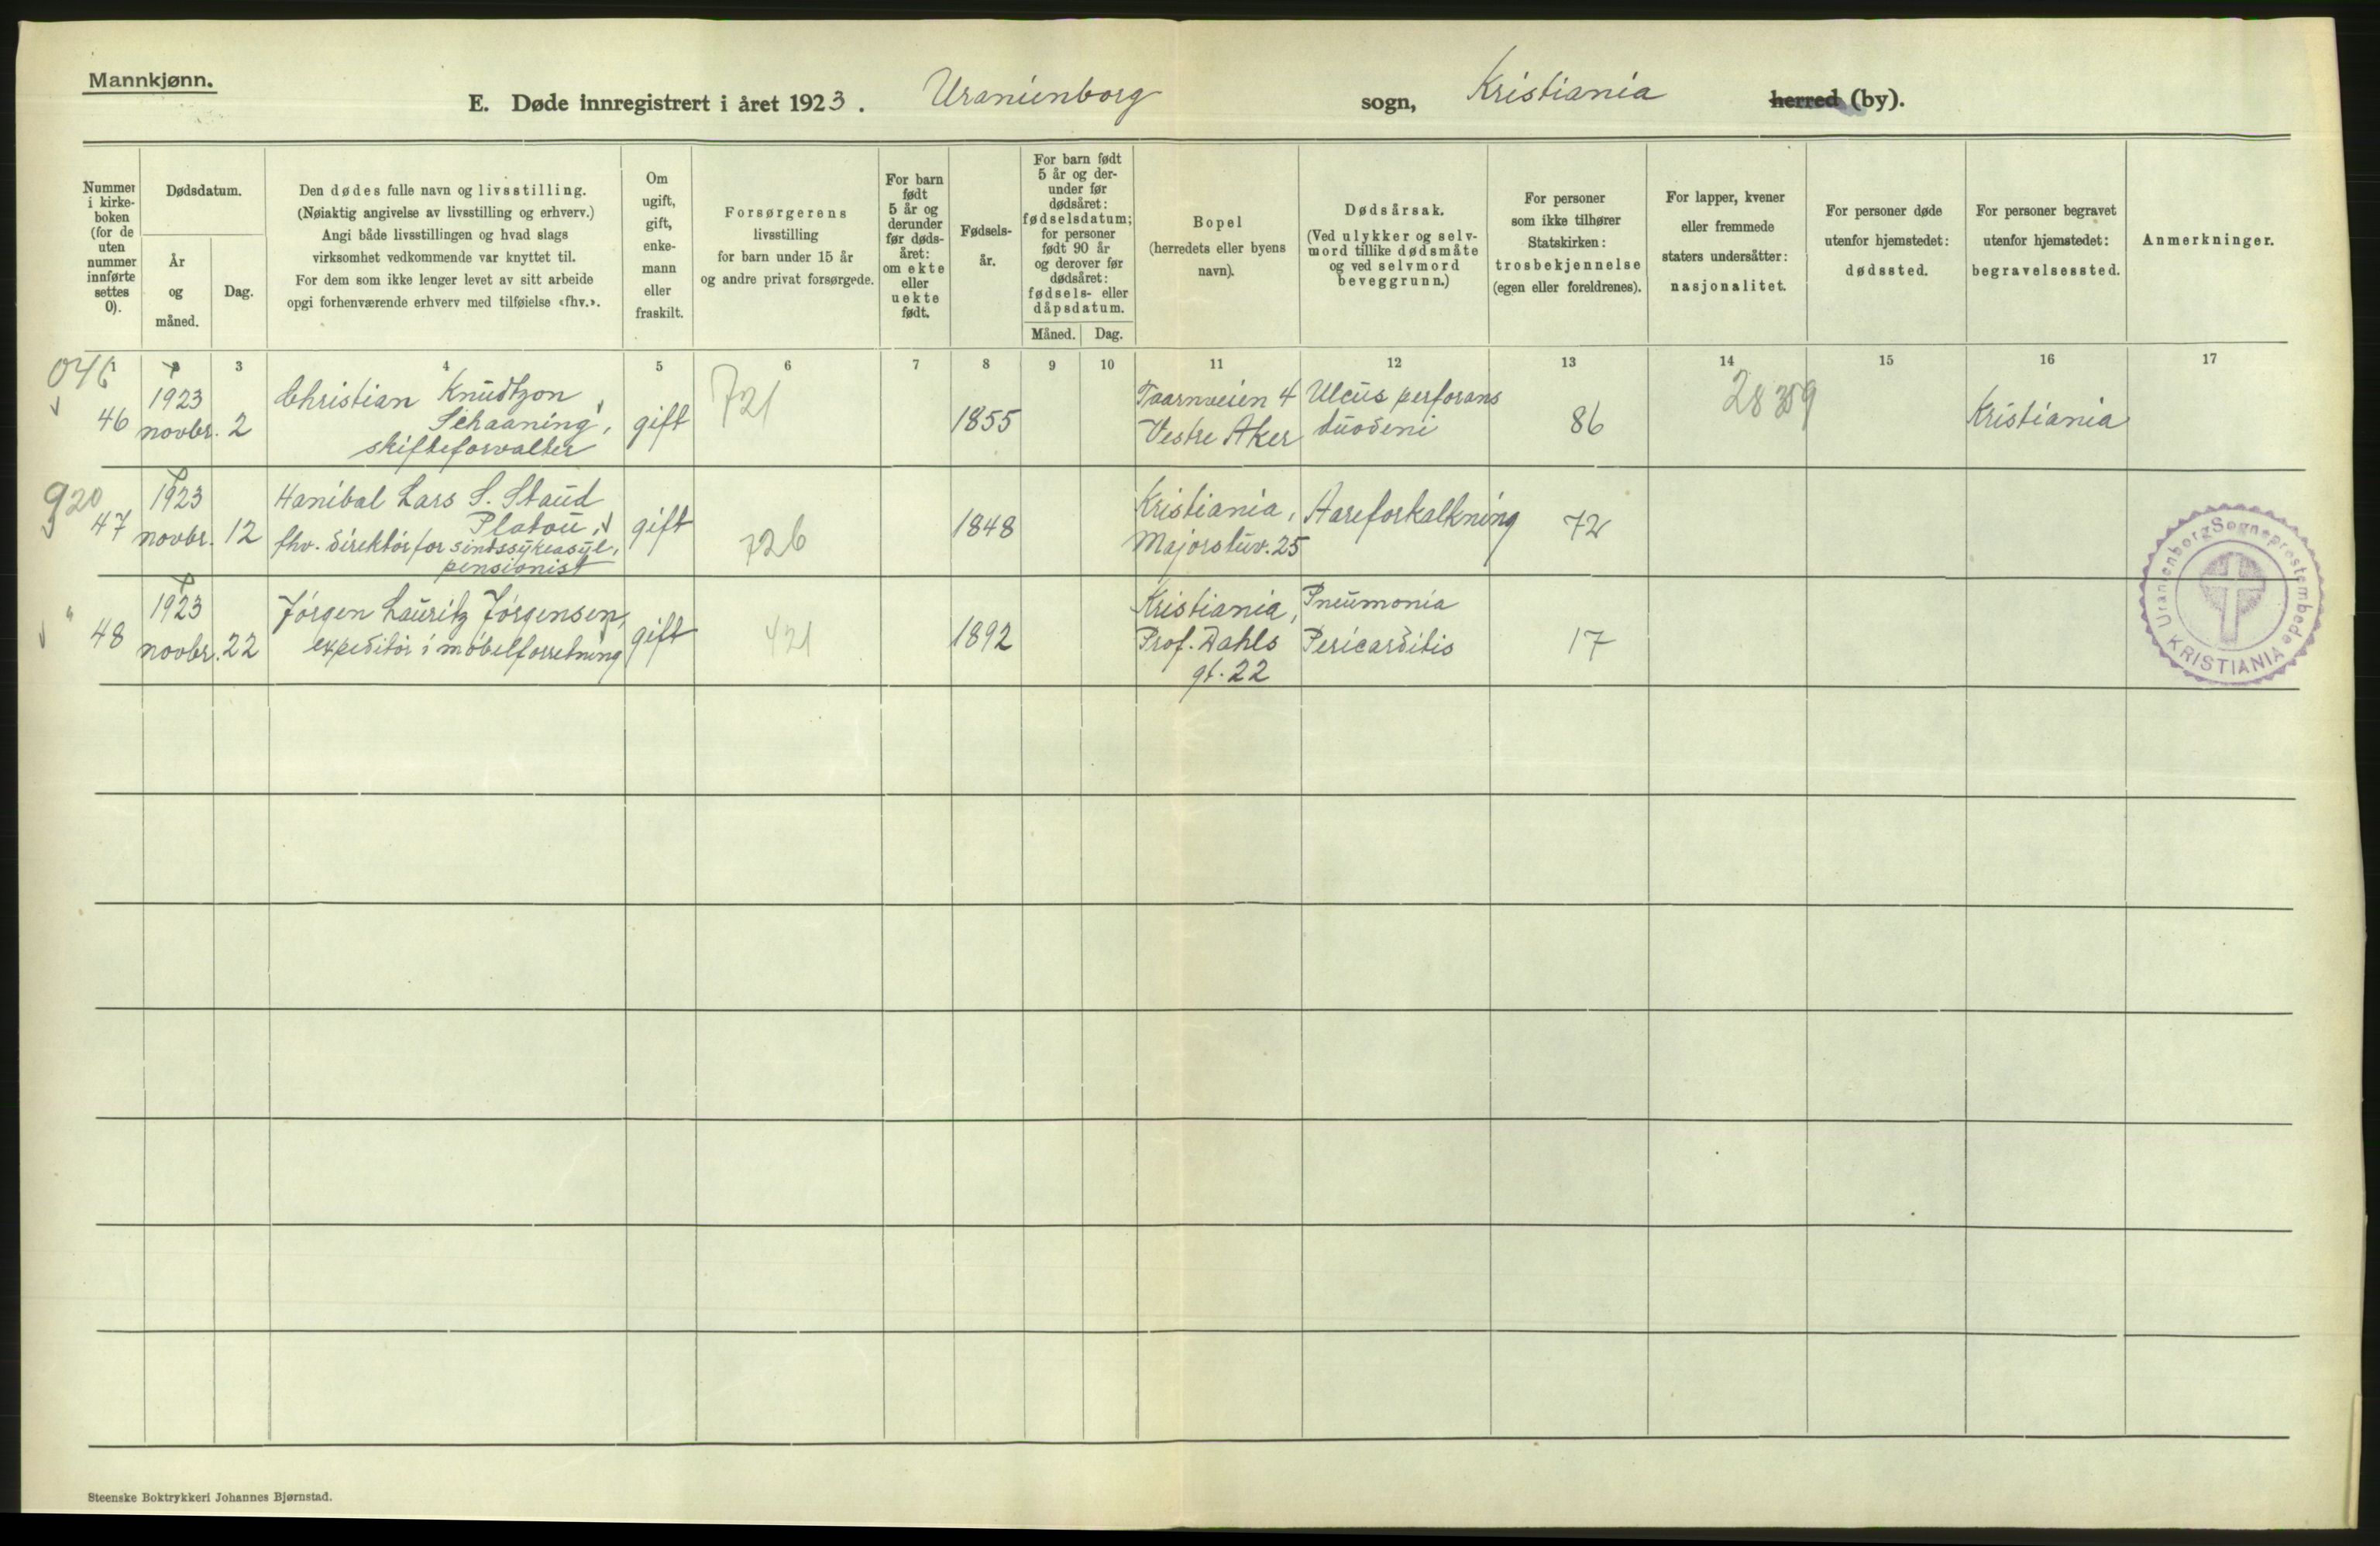 Mannkjønn.
E. Døde innregistrert i året 1923. Uranienborg sogn, Kristiania herred (by).
Nummer
i kirke-
boken
(for de
uten
nummer
innførte
settes
0).
Dødsdatum.
År
og
måned.
Dag.
Den dødes fulle navn og livsstilling.
(Nøiaktig angivelse av livsstilling og erhverv.)
Angi både livsstillingen og hvad slags
virksomhet vedkommende var knyttet til.
For dem som ikke lenger levet av sitt arbeide
opgi forhenværende erhverv med tilføielse «fhv.».
Om
ugift,
gift,
enke-
mann
eller
fraskilt.
Forsørgerens
livsstilling
for barn under 15 år
og andre privat forsørgede.
For barn
født
5 år og
derunder
før døds-
året:
om ekte
eller
uekte
født.
Fødsels-
år.
For barn født
5 år og der-
under før
dødsåret:
fødselsdatum;
for personer
født 90 år
og derover før
dødsåret:
fødsels- eller
dåpsdatum.
Måned. Dag.
Bopel
(herredets eller byens
navn).
Dødsårsak.
(Ved ulykker og selv-
mord tillike dødsmåte
og ved selvmord
beveggrunn.)
For personer
som ikke tilhører
Statskirken:
trosbekjennelse
(egen eller foreldrenes).
For lapper, kvener
eller fremmede
staters undersåtter:
nasjonalitet.
For personer døde
utenfor hjemstedet:
dødssted.
For personer begravet
utenfor hjemstedet:
begravelsessted.
Anmerkninger.
1 3 4 5 6 7 8 9 10 11 12 13 14 15 16 17
046
46
1923
novbr. 2
Christian Knudtzon
Schaaning,
skifteforvalter
gift
721
1855
Taarnveien 4
Vestre Aker
Ulcus perforans
duodeni
86
28 359
Kristiania
920
47
1923
novbr. 12
Hanibal Lars S. Staud
Platou,
fhv. direktør for sindssykeasyl,
pensionist
gift
726
1848
Kristiania,
Majorstuv. 25
Aareforkalkning
72
"
48
1923
novbr. 22
Jørgen Lauritz Jørgensen,
expeditør i møbelforretning
gift
421
1892
Kristiania,
Prof. Dahls
gt. 22
Pneumonia
Pericarditis
17
Uranienborg Sogneprestembede
KRISTIANIA
Steenske Boktrykkeri Johannes Bjørnstad.